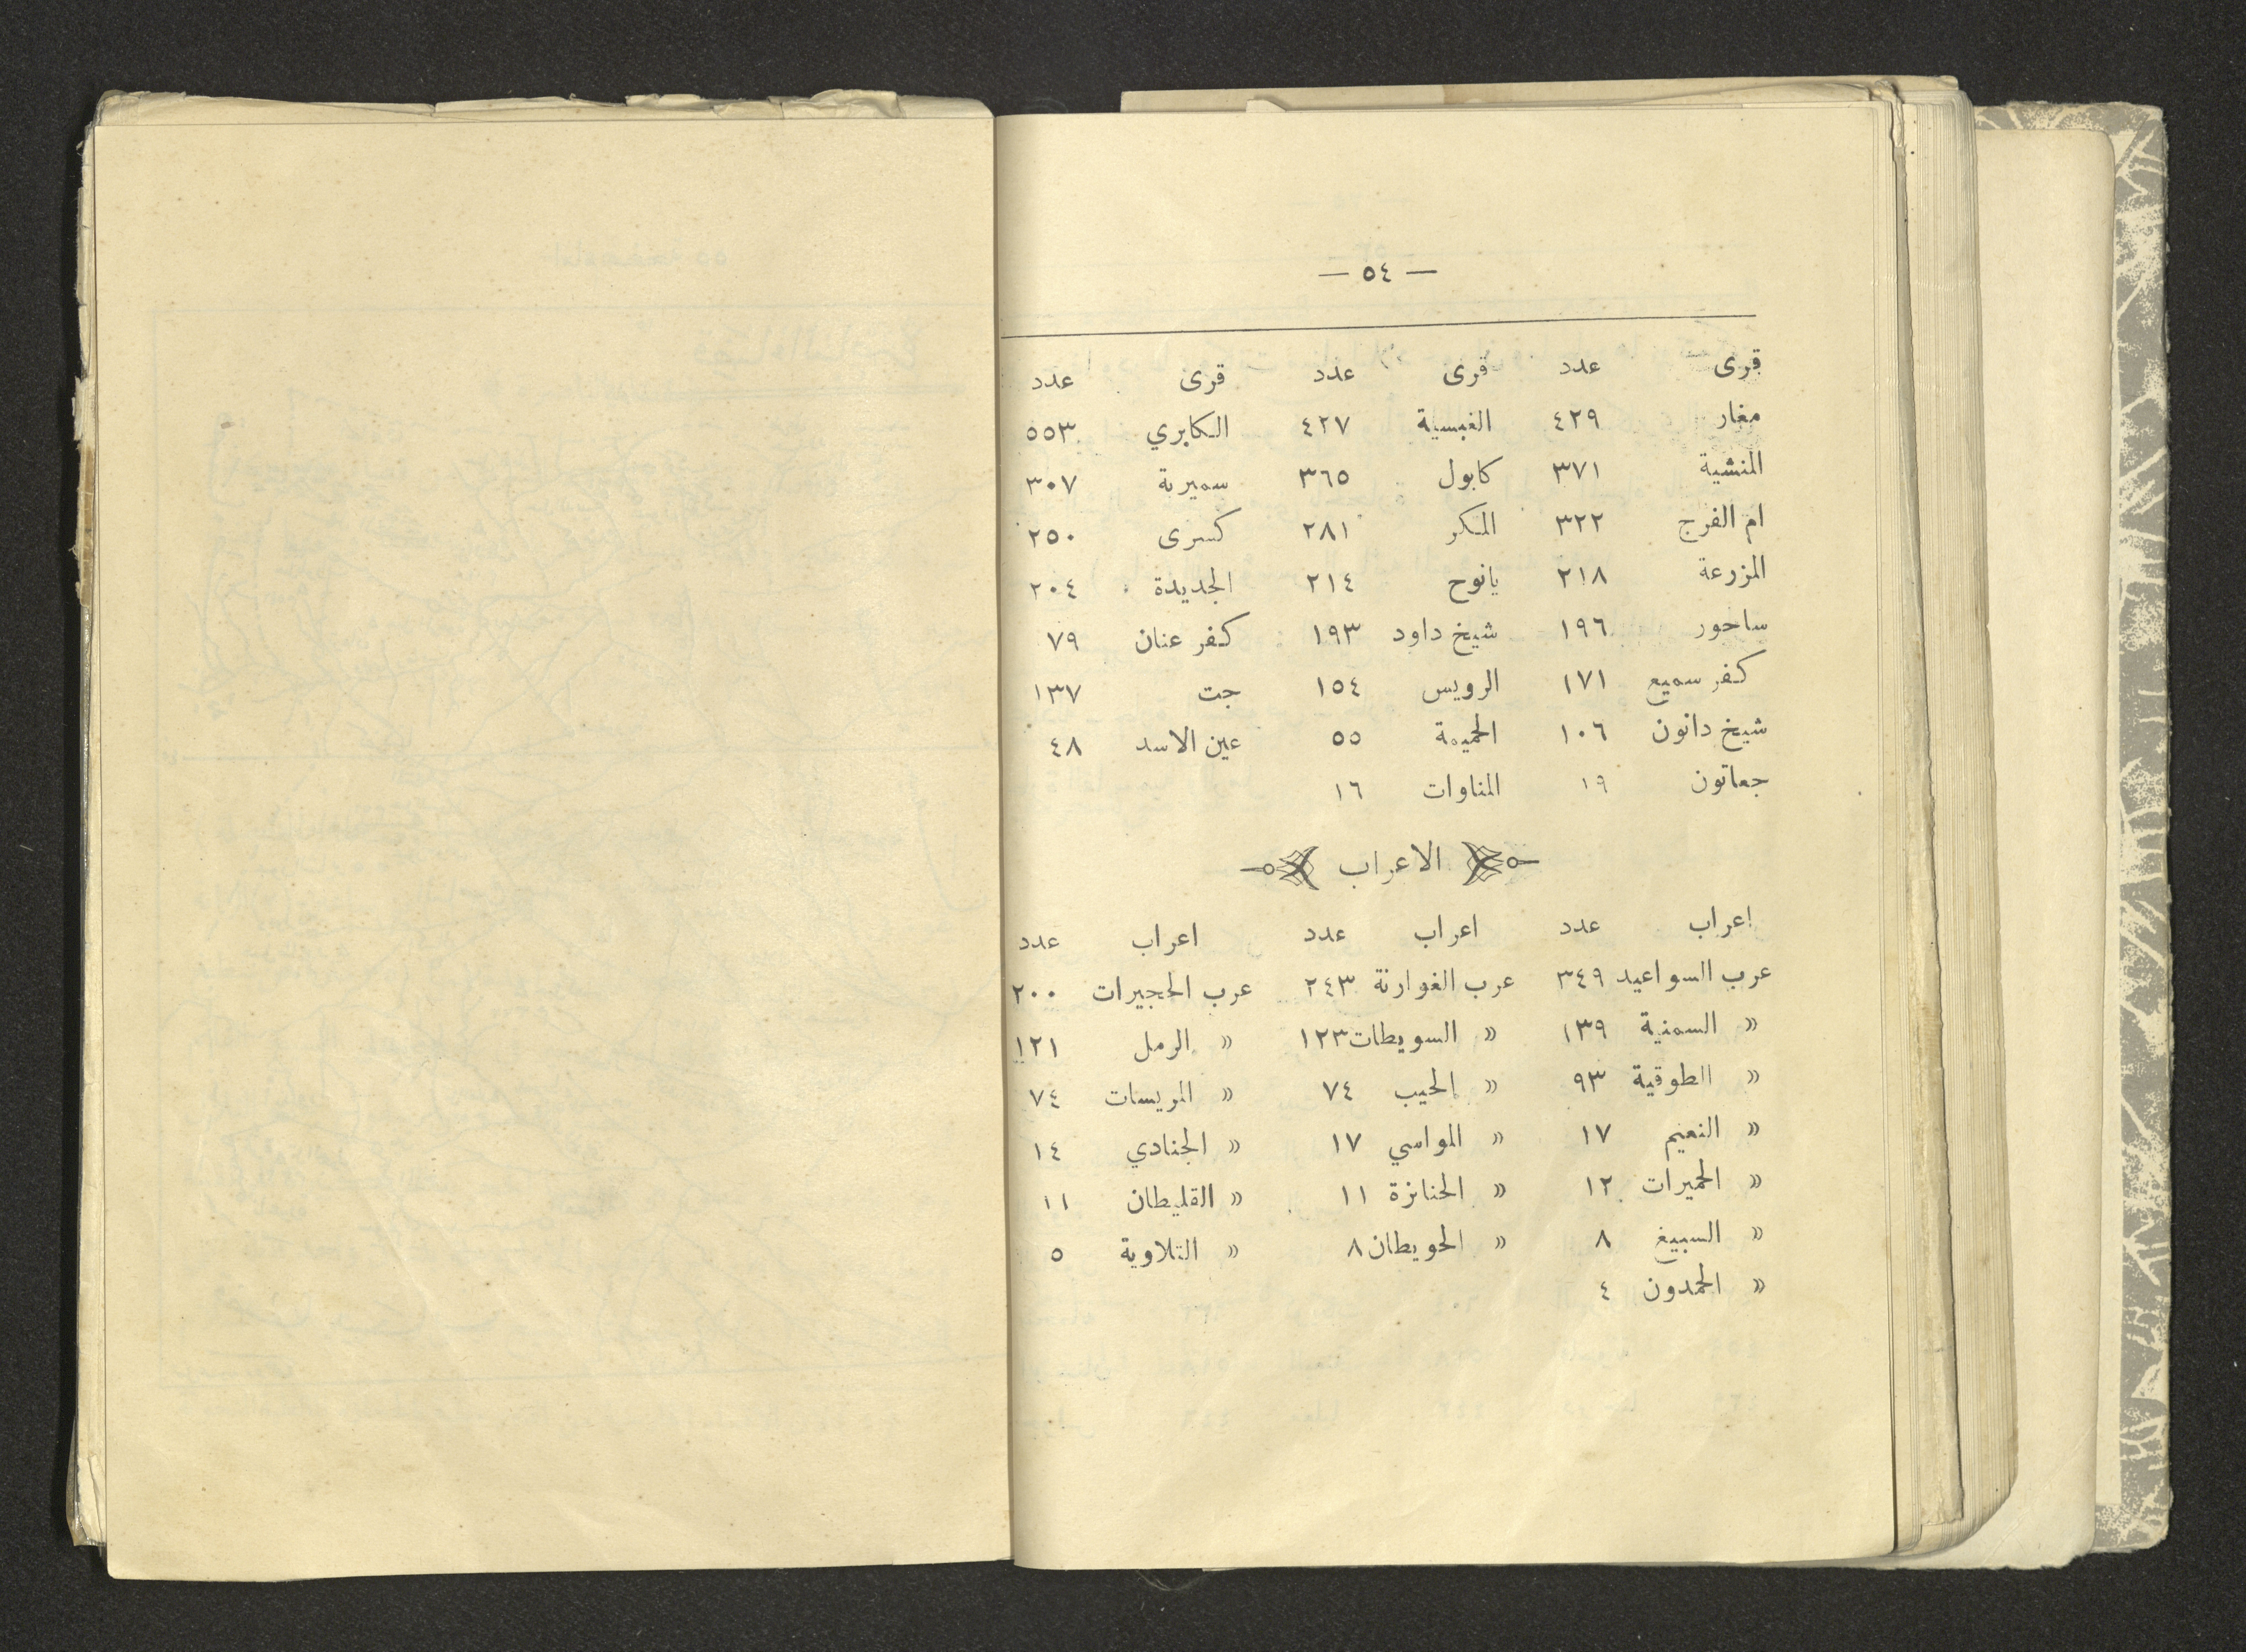 — ٥٤ —
قرى عدد قرى عدد قرى عدد
مغار ٤٢٩ الغبسية ٤٢٧ الكابري ٥٥٣
المنشية ٣٧١ كابول ٣٦٥ سميرية ٣٠٧
ام الفرج ٣٢٢ المكر ٢٨١ كسرى ٢٥٠
المزرعة ٢١٨ يانوح ٢١٤ الجديدة ٢٠٤
ساحور ١٩٦ شيخ داود ١٩٣ كفر عنان ٧٩
كفر سميع ١٧١ الرويس ١٥٤ جت ١٣٧
شيخ دانون ١٠٦ الحميمة ٥٥ عين الاسد ٤٨
جعاتون ١٩ المناوات ١٦
الاعراب
اعراب عدد اعراب عدد اعراب عدد
عرب السواعيد ٣٤٩ عرب الغوارنة ٢٤٣ عرب الحجيرات ٢٠٠
« السمنية ١٣٩ « السويطات ١٢٣ « الرمل ١٢١
« الطوقية ٩٣ « الحيب ٧٤ « المريسات ٧٤
« النعيم ١٧ « المواسي ١٧ « الجنادي ١٤
« الحميرات ١٢ « الحنازة ١١ « القليطان ١١
« السبيغ ٨ « الحويطان ٨ « التلاوية ٥
« الحمدون ٤